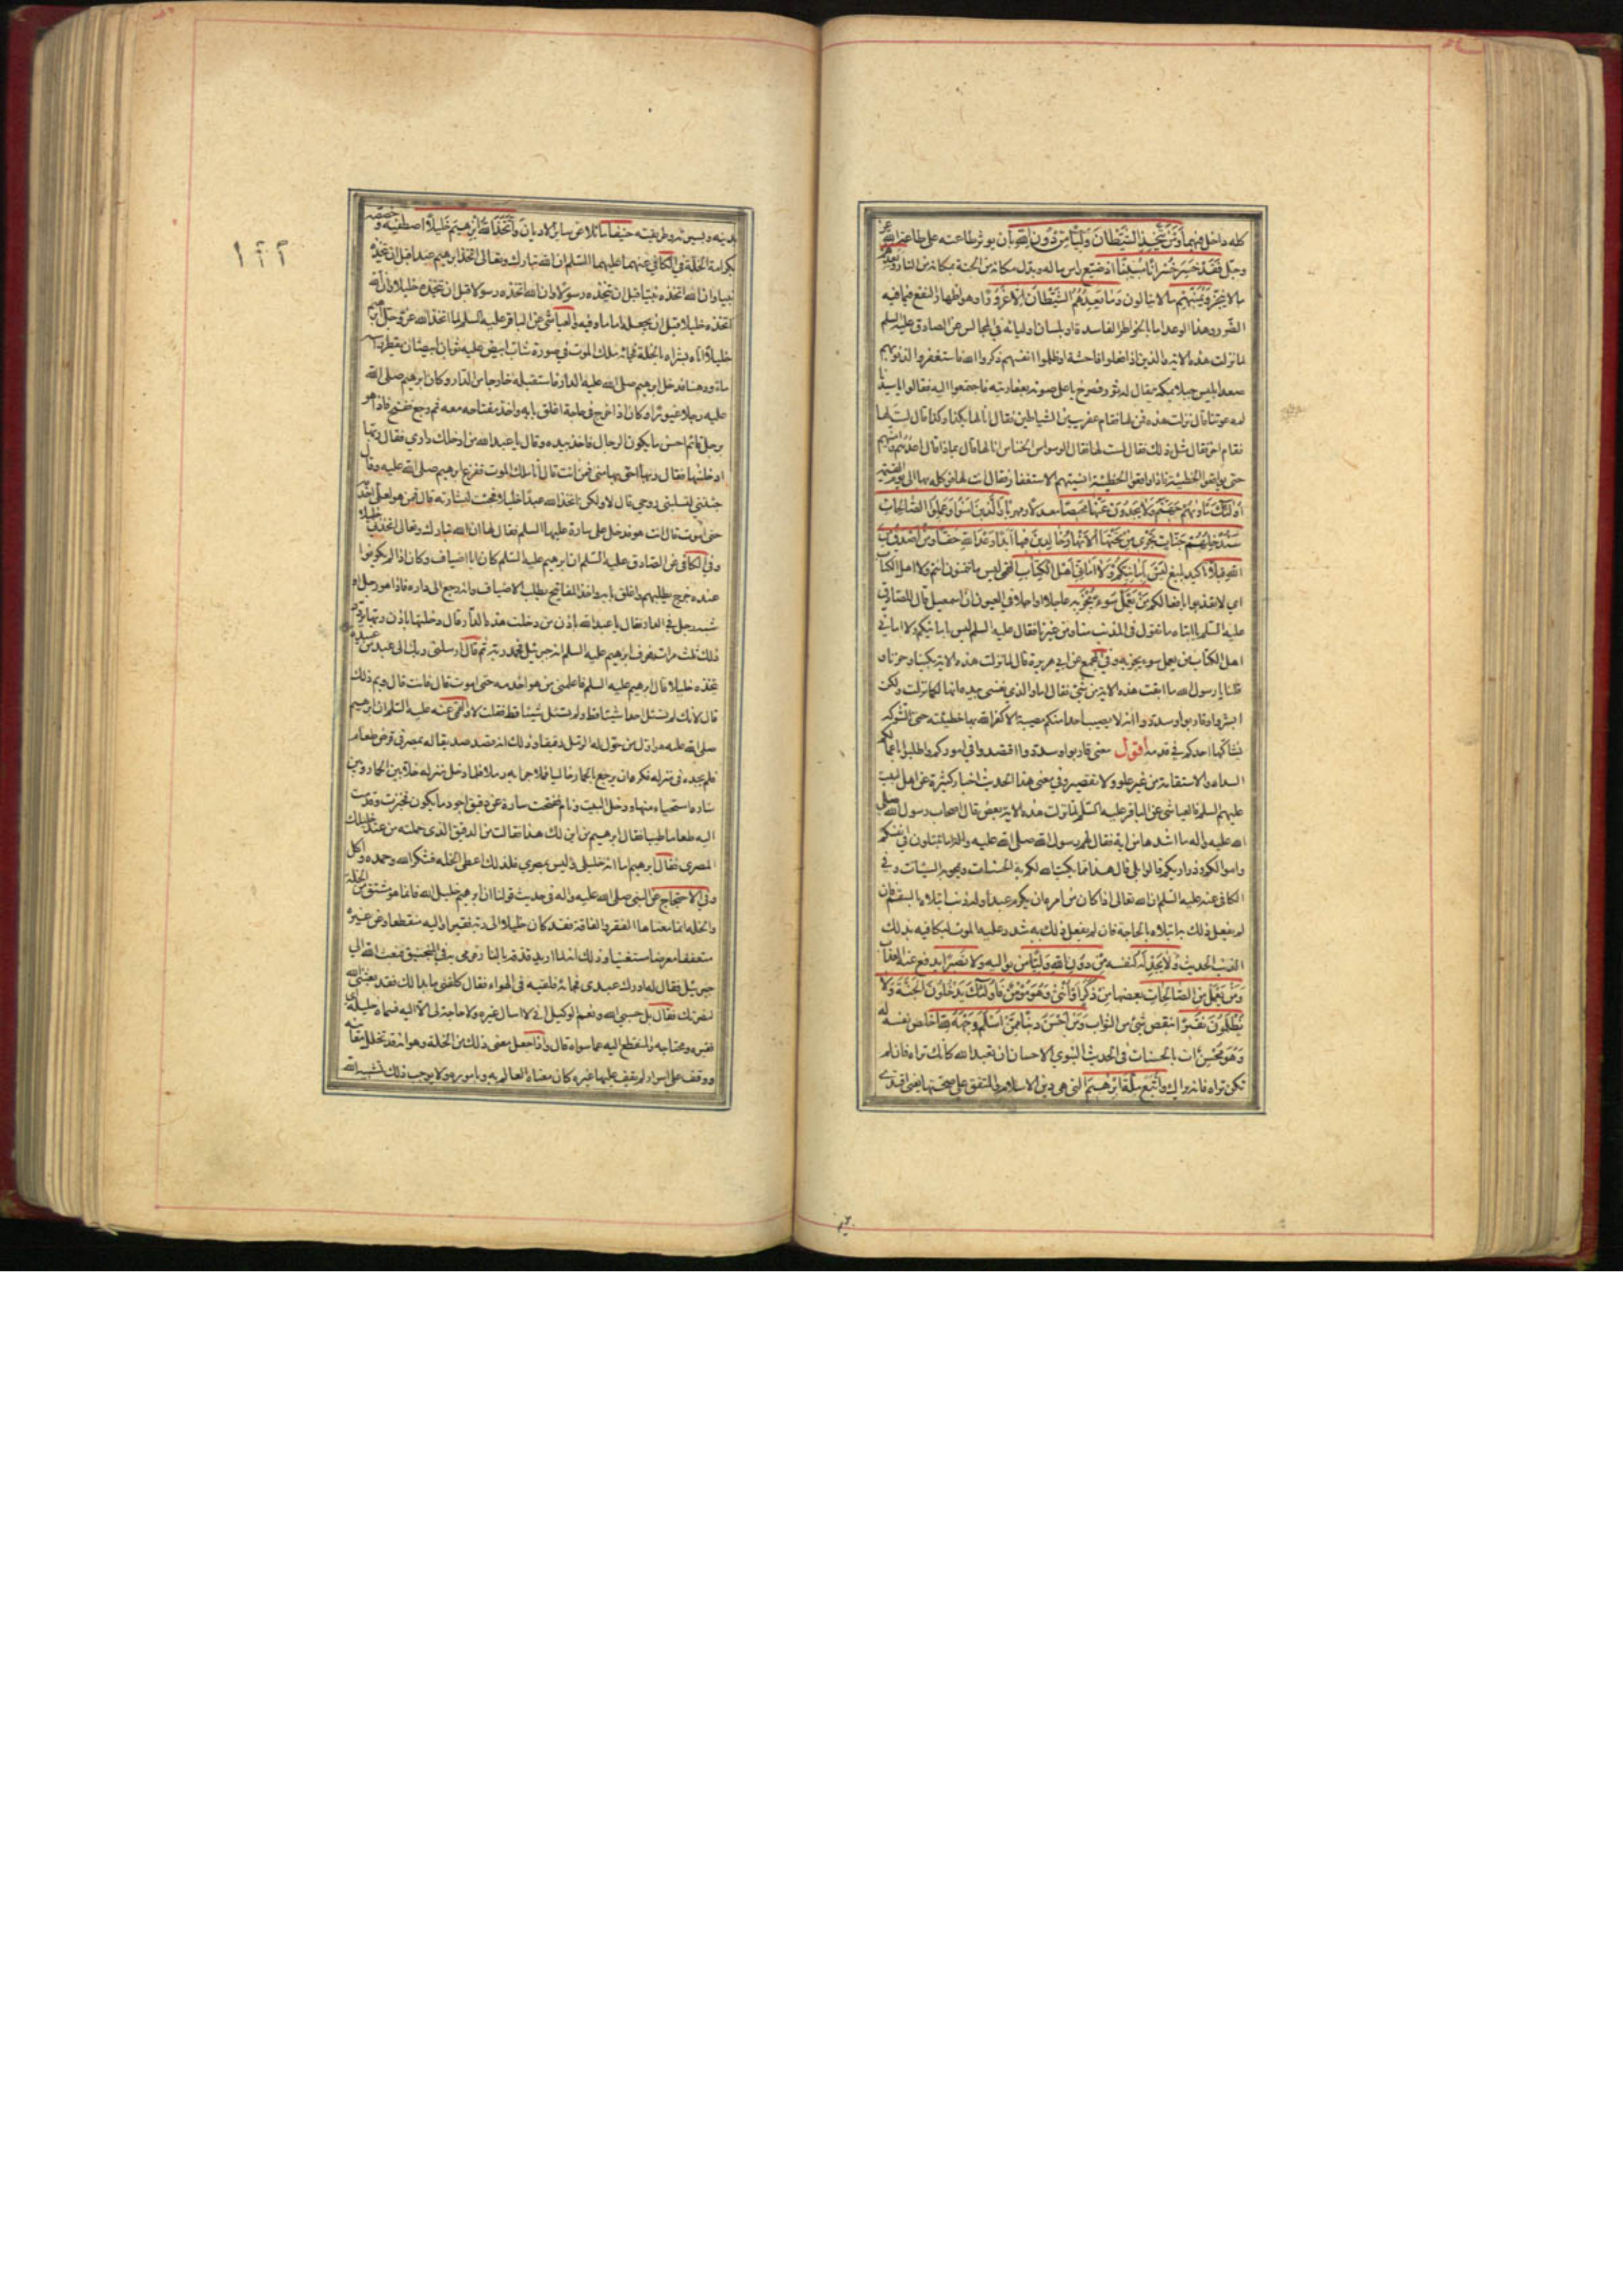 كله داخل فيهما وَمَنْ يَتَّخِذِ الشَّيْطَانَ وَلِيًّا مِنْ دُونِ اللهِ بأن يؤثر طاعته على طاعة الله عز
وجل فَقَدْ خَسِرَ خُسْرَانًا مُبِينًا اذ ضيع راس ماله وبدل مكانه من الجنة بمكانه من النار يَعِدُهُمْ
ما لا ينجز وَيُمَنِّيهِمْ ما لا ينالون وَمَا يَعِدُهُمُ الشَّيْطَانُ اِلَّا غُرُورًا وهو اظهار النفع فيما فيه
الضرر وهذا الوعد اما بالخواطر الفاسدة او بلسان اوليائه في المجالس عن الصادق عليه السلم
لما نزلت هذه الاية والذين اذا فعلوا فاحشة او ظلموا انفسهم ذكروا الله فاستغفروا لذنوبهم
صعد ابليس جبلا بمكة يقال له ثور فصرخ باعلى صوته بعفاريته فاجتمعوا اليه فقالوا يا سيدنا
لم دعوتنا قال نزلت هذه فمن لها فقام عفريت من الشياطين فقال انا لها بكذا وكذا قال لست لها
فقام اخر فقال مثل ذلك فقال لست لها فقال الوسواس الخناس انا لها قال بماذا قال اعدهم وامنيهم
حتى يواقعوا الخطيئة فاذا واقعوا الخطيئة انسيتهم الاستغفار فقال انت لها فوكله بها الى يوم القيمة
اُولَئِكَ مَأْوَيهُمْ جَهَنَّمُ وَلَا يَجِدُونَ عَنْهَا مَحِيصًا معدلا ومهربا وَالَّذِينَ آمَنُوا وَعَمِلُوا الصَّالِحَاتِ
سَنُدْخِلُهُمْ جَنَّاتٍ تَجْرِي مِنْ تَحْتِهَا الْاَنْهَارُ خَالِدِينَ فِيهَا اَبَدًا وَعْدَ اللهِ حَقًّا وَمَنْ اَصْدَقُ مِنَ
اللهِ قِيلًا تاكيد بليغ لَيْسَ بِاَمَانِيِّكُمْ وَلَا اَمَانِيِّ اَهْلِ الْكِتَابِ القمي ليس ما تتمنون انتم ولا اهل الكتاب
اي لا تعذبوا بافعالكم مَنْ يَعْمَلْ سُوءً يُجْزَ بِهِ عاجلا او اجلا في العيون ان اسمعيل قال للصادق
عليه السلم يا ابتاه ما تقول في المذنب منا ومن غيرنا فقال عليه السلم ليس بامانيكم ولا اماني
اهل الكتاب من يعمل سوء يجز به وفي المجمع عن ابي هريرة قال لما نزلت هذه الاية بكينا وحزنا و
قلنا يا رسول الله ما ابقت هذه الاية من شئ فقال اما والذي نفسي بيده انها لكما نزلت ولكن
ابشروا وقاربوا وسددوا انه لا يصيب احدا منكم مصيبة الا كفر الله بها خطيئته حتى الشوكة
يشاكها احدكم في قدمه أقول معنى قاربوا وسددوا اقتصدوا في اموركم واطلبوا باعمالكم
السداد والاستقامة من غير غلو ولا تقصير وفي معنى هذا الحديث اخبار كثيرة عن اهل البيت
عليهم السلم والعياشي عن الباقر عليه السلم لما نزلت هذه الاية من يعمل قال بعض اصحاب رسول الله صلى
الله عليه واله ما اشدها من اية فقال لهم رسول الله صلى الله عليه واله اما تبتلون في انفسكم
واموالكم وذراريكم قالوا بلى قال هذا مما يكتب الله لكم به الحسنات ويمحو به السيئات وفي
الكافي عنه عليه السلم ان الله تعالى اذا كان من امره ان يكرم عبدا وله ذنب ابتلاه بالسقم فان
لم يفعل ذلك به ابتلاه بالحاجة فان لم يفعل ذلك به شدد عليه الموت ليكافيه بذلك
الذنب الحديث وَلَا يَجِدْ لَهُ لنفسه مِنْ دُونِ اللهِ وَلِيًّا من يواليه وَلَا نَصِيرًا يدفع عنه العذاب
وَمَنْ يَعْمَلْ مِنَ الصَّالِحَاتِ بعضها مِنْ ذَكَرٍ اَوْ اُنْثَى وَهُوَ مُؤْمِنٌ فَاُولَئِكَ يَدْخُلُونَ الْجَنَّةَ وَلَا
يُظْلَمُونَ نَقِيرًا بنقص شئ من الثواب وَمَنْ اَحْسَنُ دِينًا مِمَّنْ اَسْلَمَ وَجْهَهُ لِلهِ اخلص نفسه له
وَهُوَ مُحْسِنٌ ات بالحسنات في الحديث النبوي الاحسان ان تعبد الله كانك تراه فان لم
تكن تراه فانه يراك وَاتَّبَعَ مِلَّةَ اِبْرَهِيمَ التي هي دين الاسلام والمتفق على صحتها يعني اقتدى
بدينه وبسيرته وطريقته حَنِيفًا مائلا عن ساير الاديان وَاتَّخَذَ اللهُ اِبْرَهِيمَ خَلِيلًا اصطفيه وخصصه
بكرامة الخلة في الكافي عنهما عليهما السلم ان الله تبارك وتعالى اتخذ ابرهيم عبدا قبل ان يتخذه
نبيا وان الله اتخذه نبيا قبل ان يتخذه رسولا وان الله اتخذه رسولا قبل ان يتخذه خليلا وان الله
اتخذه خليلا قبل ان يجعله اماما وفيه والعياشي عن الباقر عليه السلم لما اتخذ الله عز وجل ابرهيم
خليلا اتاه بشراه بالخلة فجائه ملك الموت في صورة شاب ابيض عليه ثوبان ابيضان يقطر راسه
ماء ودهنا فدخل ابرهيم صلى الله عليه الدار فاستقبله خارجا من الدار وكان ابرهيم صلى الله
عليه رجلا غيورا وكان اذا خرج في حاجة اغلق بابه واخذ مفتاحه معه ثم رجع ففتح فاذا هو
برجل قائم احسن ما يكون الرجال فاخذ بيده وقال يا عبد الله من ادخلك داري فقال ربها
ادخلنيها فقال ربها احق بها مني فمن انت قال انا ملك الموت ففزع ابرهيم صلى الله عليه وقال
جئتني لتسلبني روحي قال لا ولكن اتخذ الله عبدا خليلا فجئت لبشارته قال فمن هو لعلي اخدمه
حتى اموت قال انت هو فدخل على سارة عليها السلم فقال لها ان الله تبارك وتعالى اتخذني خليلا
وفي الكافي عن الصادق عليه السلم ان ابرهيم عليه السلم كان ابا اضياف وكان اذا لم يكونوا
عنده خرج يطلبهم واغلق بابه واخذ المفاتيح يطلب الاضياف وانه رجع الى داره فاذا هو برجل او
شبه رجل في الدار فقال يا عبد الله باذن من دخلت هذه الدار قال دخلتها باذن ربها يردد
ذلك ثلث مرات فعرف ابرهيم عليه السلم انه جبرئيل فحمد ربه ثم قال ارسلني ربك الى عبد من عبيده
يتخذه خليلا قال ابرهيم عليه السلم فاعلمني من هو اخدمه حتى اموت قال فانت قال ومم ذلك
قال لانك لم تسئل احدا شيئا قط ولم تسئل شيئا قط فقلت لا والقمي عنه عليه السلم ان ابرهيم
صلى الله عليه هو اول من حول له الرمل دقيقا وذلك انه قصد صديقا له بمصر في قرض طعام
فلم يجده في منزله فكره ان يرجع بالحمار خاليا فملا جرابه رملا فلما دخل منزله خلا بين الحمار وبين
ساره استحياء منها ودخل البيت ونام ففتحت سارة عن دقيق اجود ما يكون فخبزت وقدمت
اليه طعاما طيبا فقال ابرهيم من اين لك هذا فقالت من الدقيق الذي حملته من عند خليلك
المصري فقال ابرهيم اما انه خليلي وليس بمصري فلذلك اعطى الخلة فشكر الله وحمده واكل
وفي الاحتجاج عن النبي صلى الله عليه واله في حديث قولنا ان ابرهيم خليل الله فانما هو مشتق من الخلة
والخلة انما معناها الفقر والفاقة فقد كان خليلا الى ربه فقيرا واليه منقطعا وعن غيره
متعففا معرضا مستغنيا وذلك انه لما اريد قذفه بالنار فرمي به في المنجنيق فبعث الله الى
جبرئيل فقال له ادرك عبدي فجائه فلقيه في الهواء فقال كلفني ما بدا لك فقد بعثني الله
لنصرتك فقال بل حسبي الله ونعم الوكيل اني لا اسال غيره ولا حاجة لي الا اليه فسماه خليله اي
فقيره ومحتاجه والمنقطع اليه عما سواه قال واذا جعل معنى ذلك من الخلة وهو انه قد تخلل معانيه
ووقف على اسرار لم يقف عليها غيره كان معناه العالم به وباموره ولا يوجب ذلك تشبيه الله